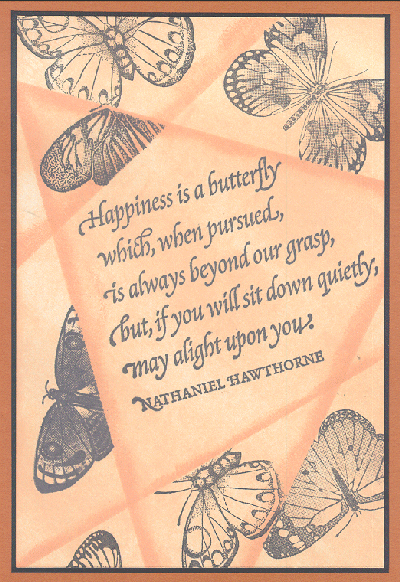 Happiness is a butterfly
which, when pursued,
is always beyond our grasp,
but, if you will sit down quietly,
may alight upon you.
NATHANIEL HAWTHORNE